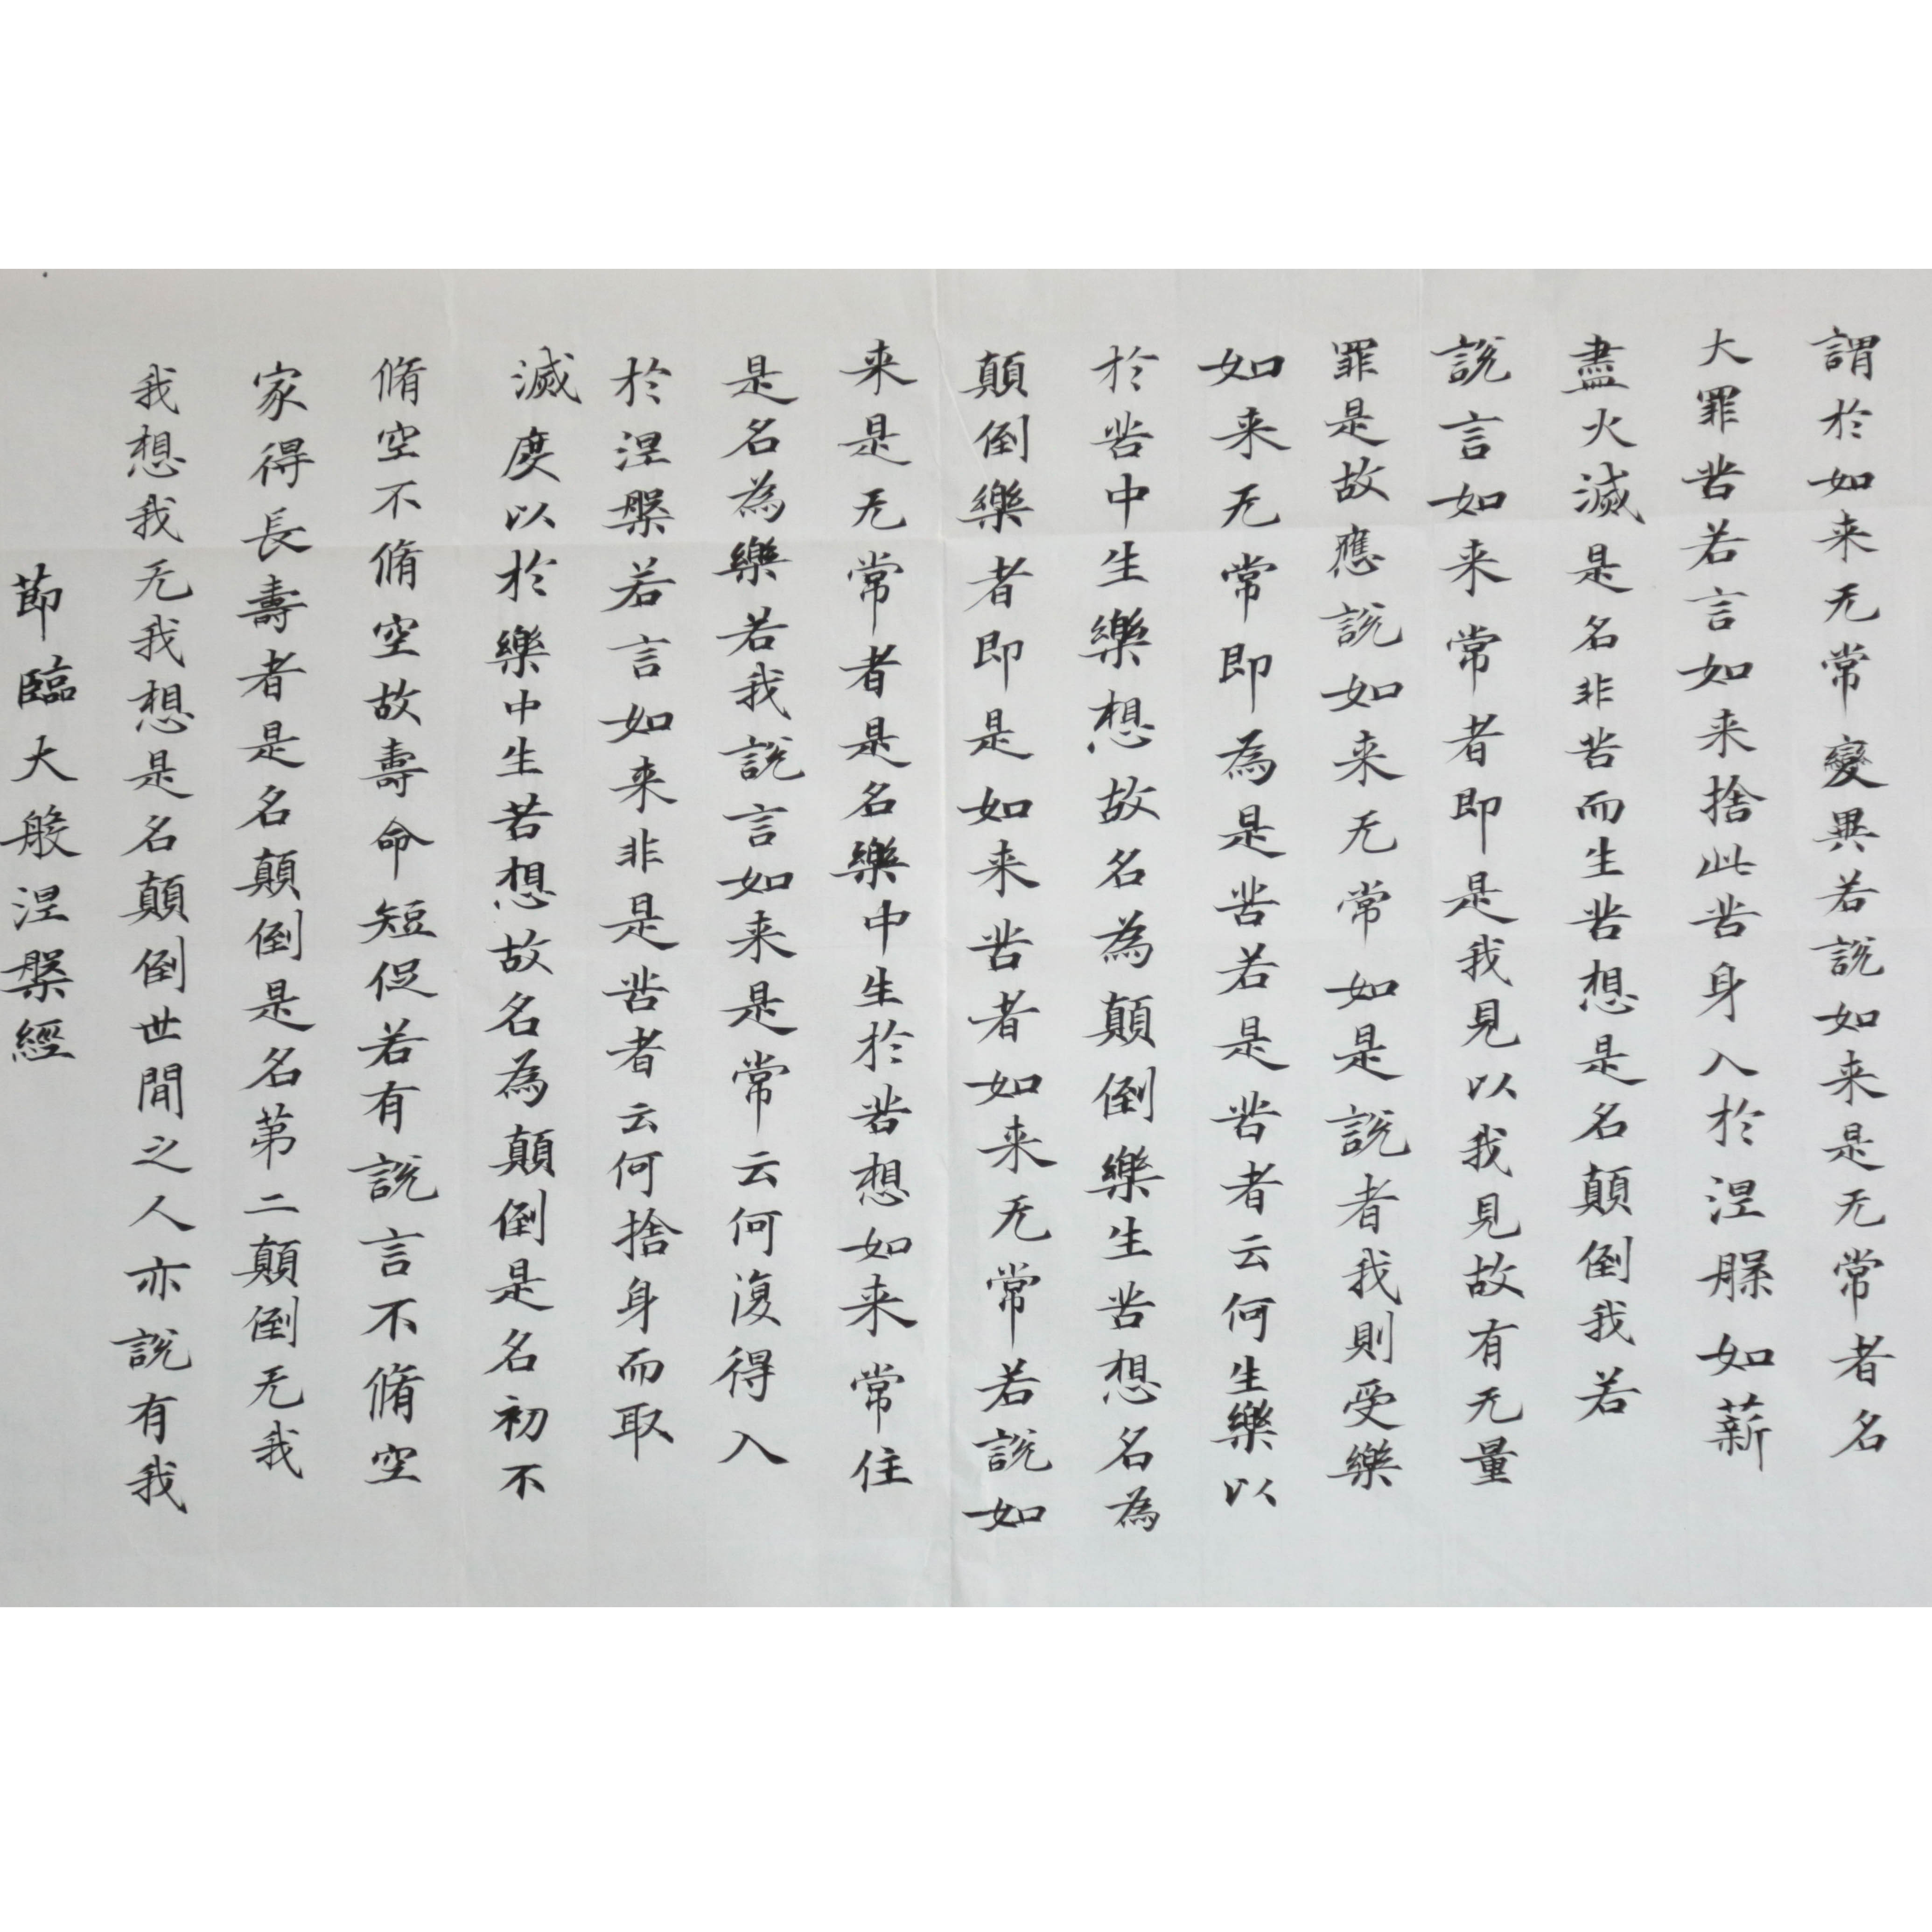 謂於如来无常變異若說如来是无常者名
大罪苦若言如来捨此苦身入於涅槃如薪
盡火滅是名非苦而生苦想是名顛倒我若
說言如来常者即是我見以我見故有无量
罪是故應說如来无常如是說者我則受樂
如来无常即為是苦若是苦者云何生樂以
於苦中生樂想故名為顛倒樂生苦想名為
顛倒樂者即是如来苦者如来无常若說如
来是无常者是名樂中生於苦想如来常住
是名為樂若我說言如来是常云何復得入
於涅槃若言如来非是苦者云何捨身而取
滅度以於樂中生苦想故名為顛倒是名初不
脩空不脩空故壽命短促若有說言不脩空
家得長壽者是名顛倒是名第二顛倒无我
我想我无我想是名顛倒世間之人亦說有我
莭臨大般涅槃經